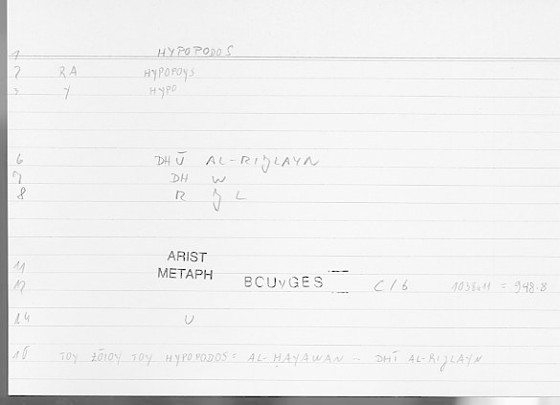 1 HYPOPODOS
2 RA HYPOPOYS
3 y HYPO
6 DHŪ AL-RIJLAYN
7 DH W
8 R J L
11 ARIST
12 METAPH BCUvGES C/6 = 948.8
14 U
15 TOY ZŌIOY TOY HYPOPODOS = AL-ḤAYAWAN - DHĪ AL-RIJLAYN